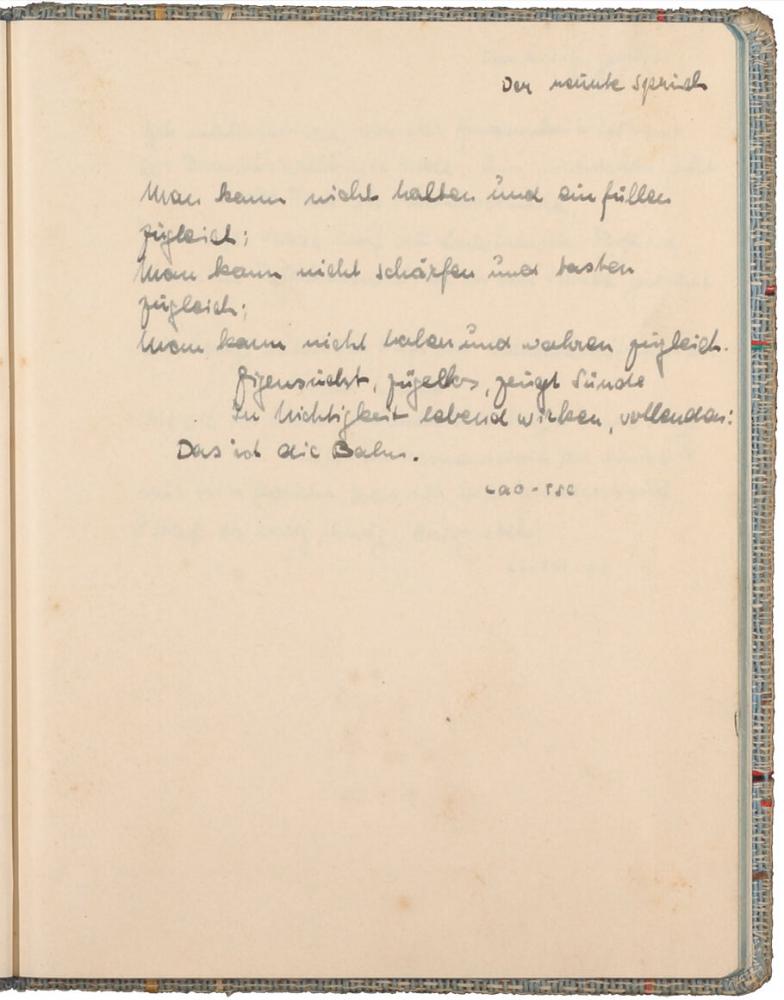 Der neunte Spruch
Man kann nicht halten und einfüllen
zugleich;
Man kann nicht schärfen und tasten
zugleich;
Man kann nicht haben und wahren zugleich.
Eigensucht, zügellos, zeugt Sünde
In Nichtigkeit lebend wirken, vollenden:
Das ist die Bahn.
Lao-Tse